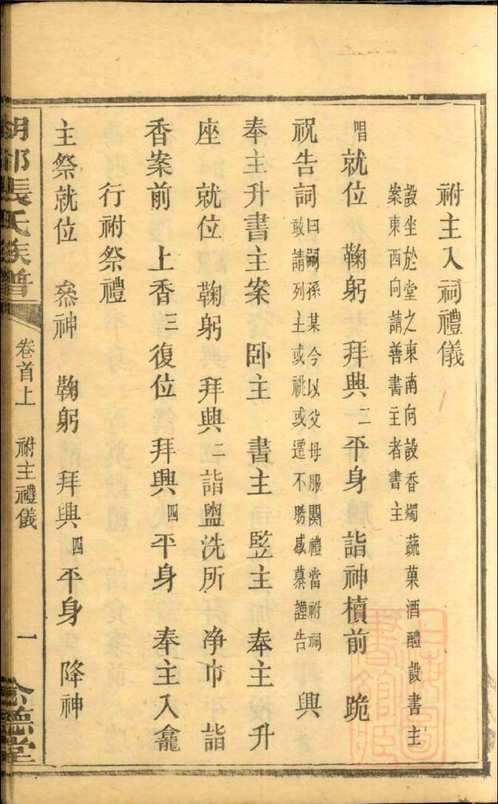 祔主入祠禮儀
設坐於堂之東南向設香燭蔬菓酒醴設書主
案東西向請善書主者書主
唱就位 鞠躬 拜興二平身 詣神櫝前 跪
祝告詞曰嗣孫某今以父母服闋禮當祔祠
敢請列主或祧或遷不勝感慕謹告 興
奉主升書主案 臥主 書主 監主 奉主升
座 就位 鞠躬 拜興二詣盥洗所 净巾 詣
香案前 上香三復位 拜興四平身 奉主入龕
行祔祭禮
主祭就位 叅神 鞠躬 拜興四平身 降神
張氏族譜
卷首上 祔主禮儀 一
德堂